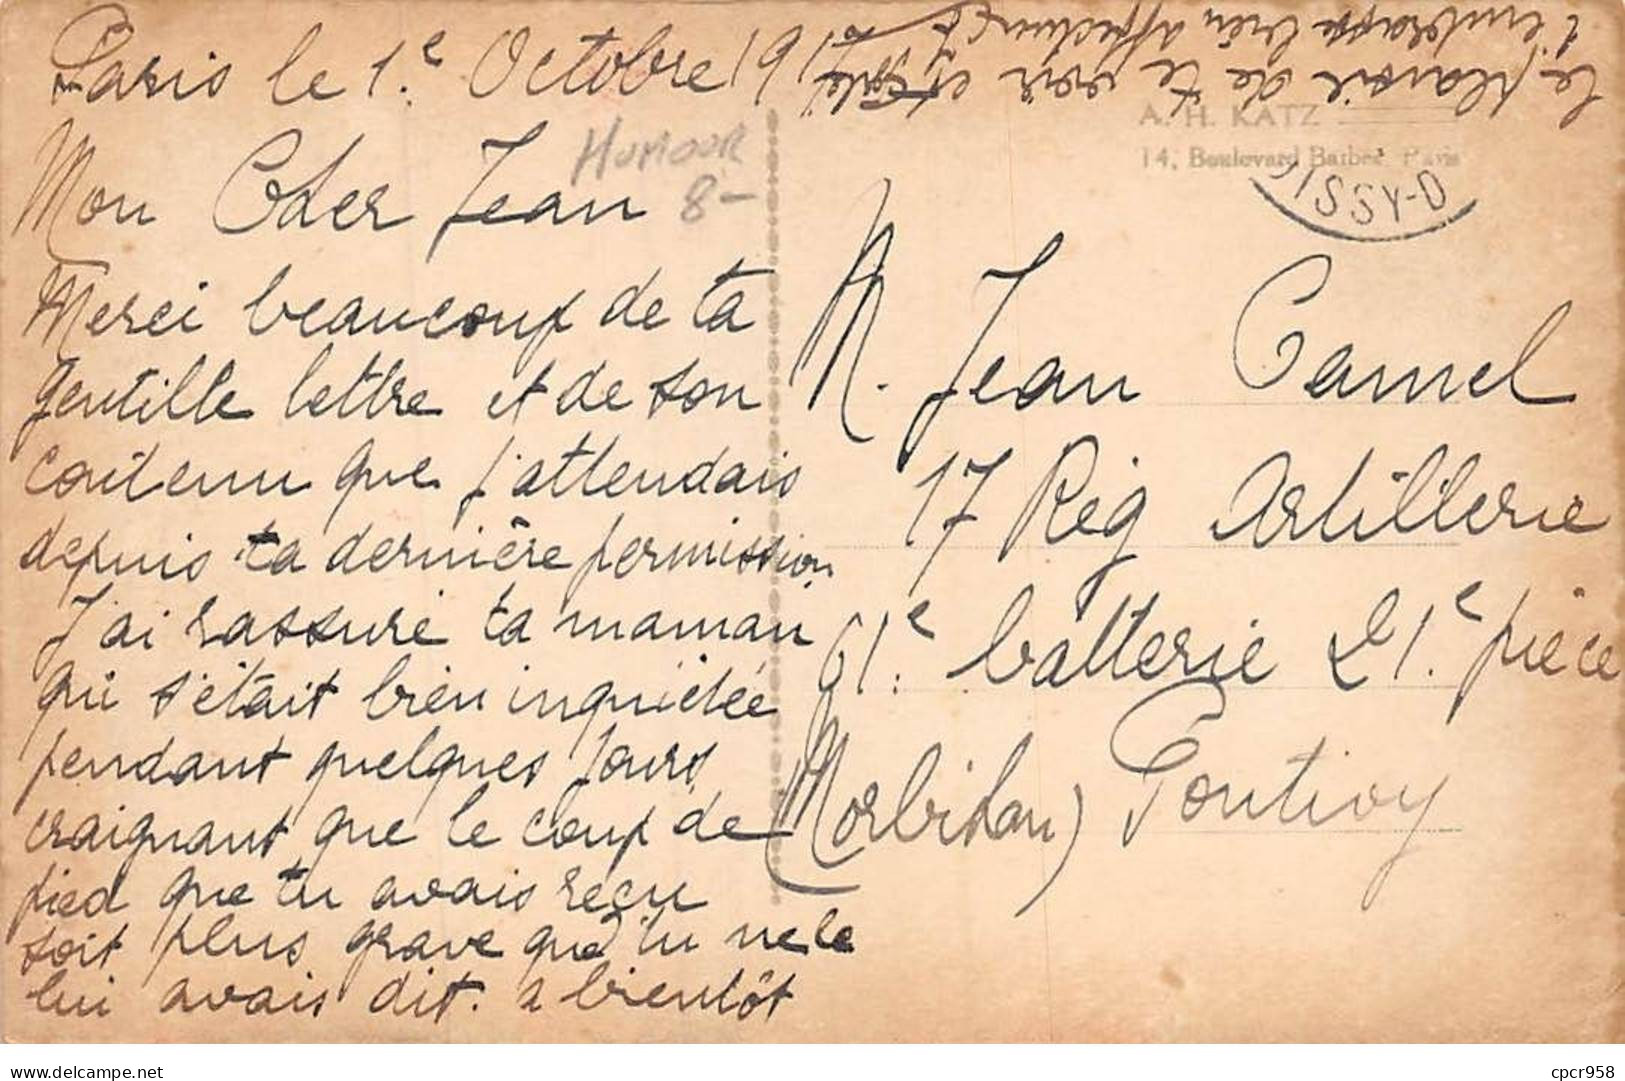 Paris le 1.e Octobre 191
Mon Cher Jean
Merci beaucoup de ta
gentille lettre et de son
contenu que j'attendais
depuis ta dernière permission
J'ai rassuré ta maman
qui s'était bien inquiétée
pendant quelques jours
craignant que le coup de
pied que tu avais reçu
soit plus grave que tu ne le
lui avais dit. a bientôt
le plaisir de te voir et
t'embrasse bien affectueuset
HUMOUR
8-
A. H. KATZ
14, Boulevard Barbès Paris
ISSY-D
M. Jean Camel
17 Reg Artillerie
61e. batterie 21.e pièce
(Morbihan) Pontivy
cpcr958